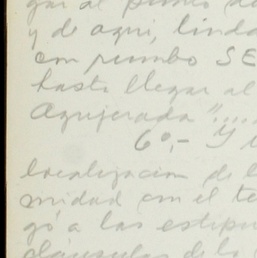 gar al punto de
y de aqui, linda
con rumbo SE
hasta llegar al
Agujerada"....
6º,- y
localizacion de l
midad con el te
gó a las estipu
cláusulas de la